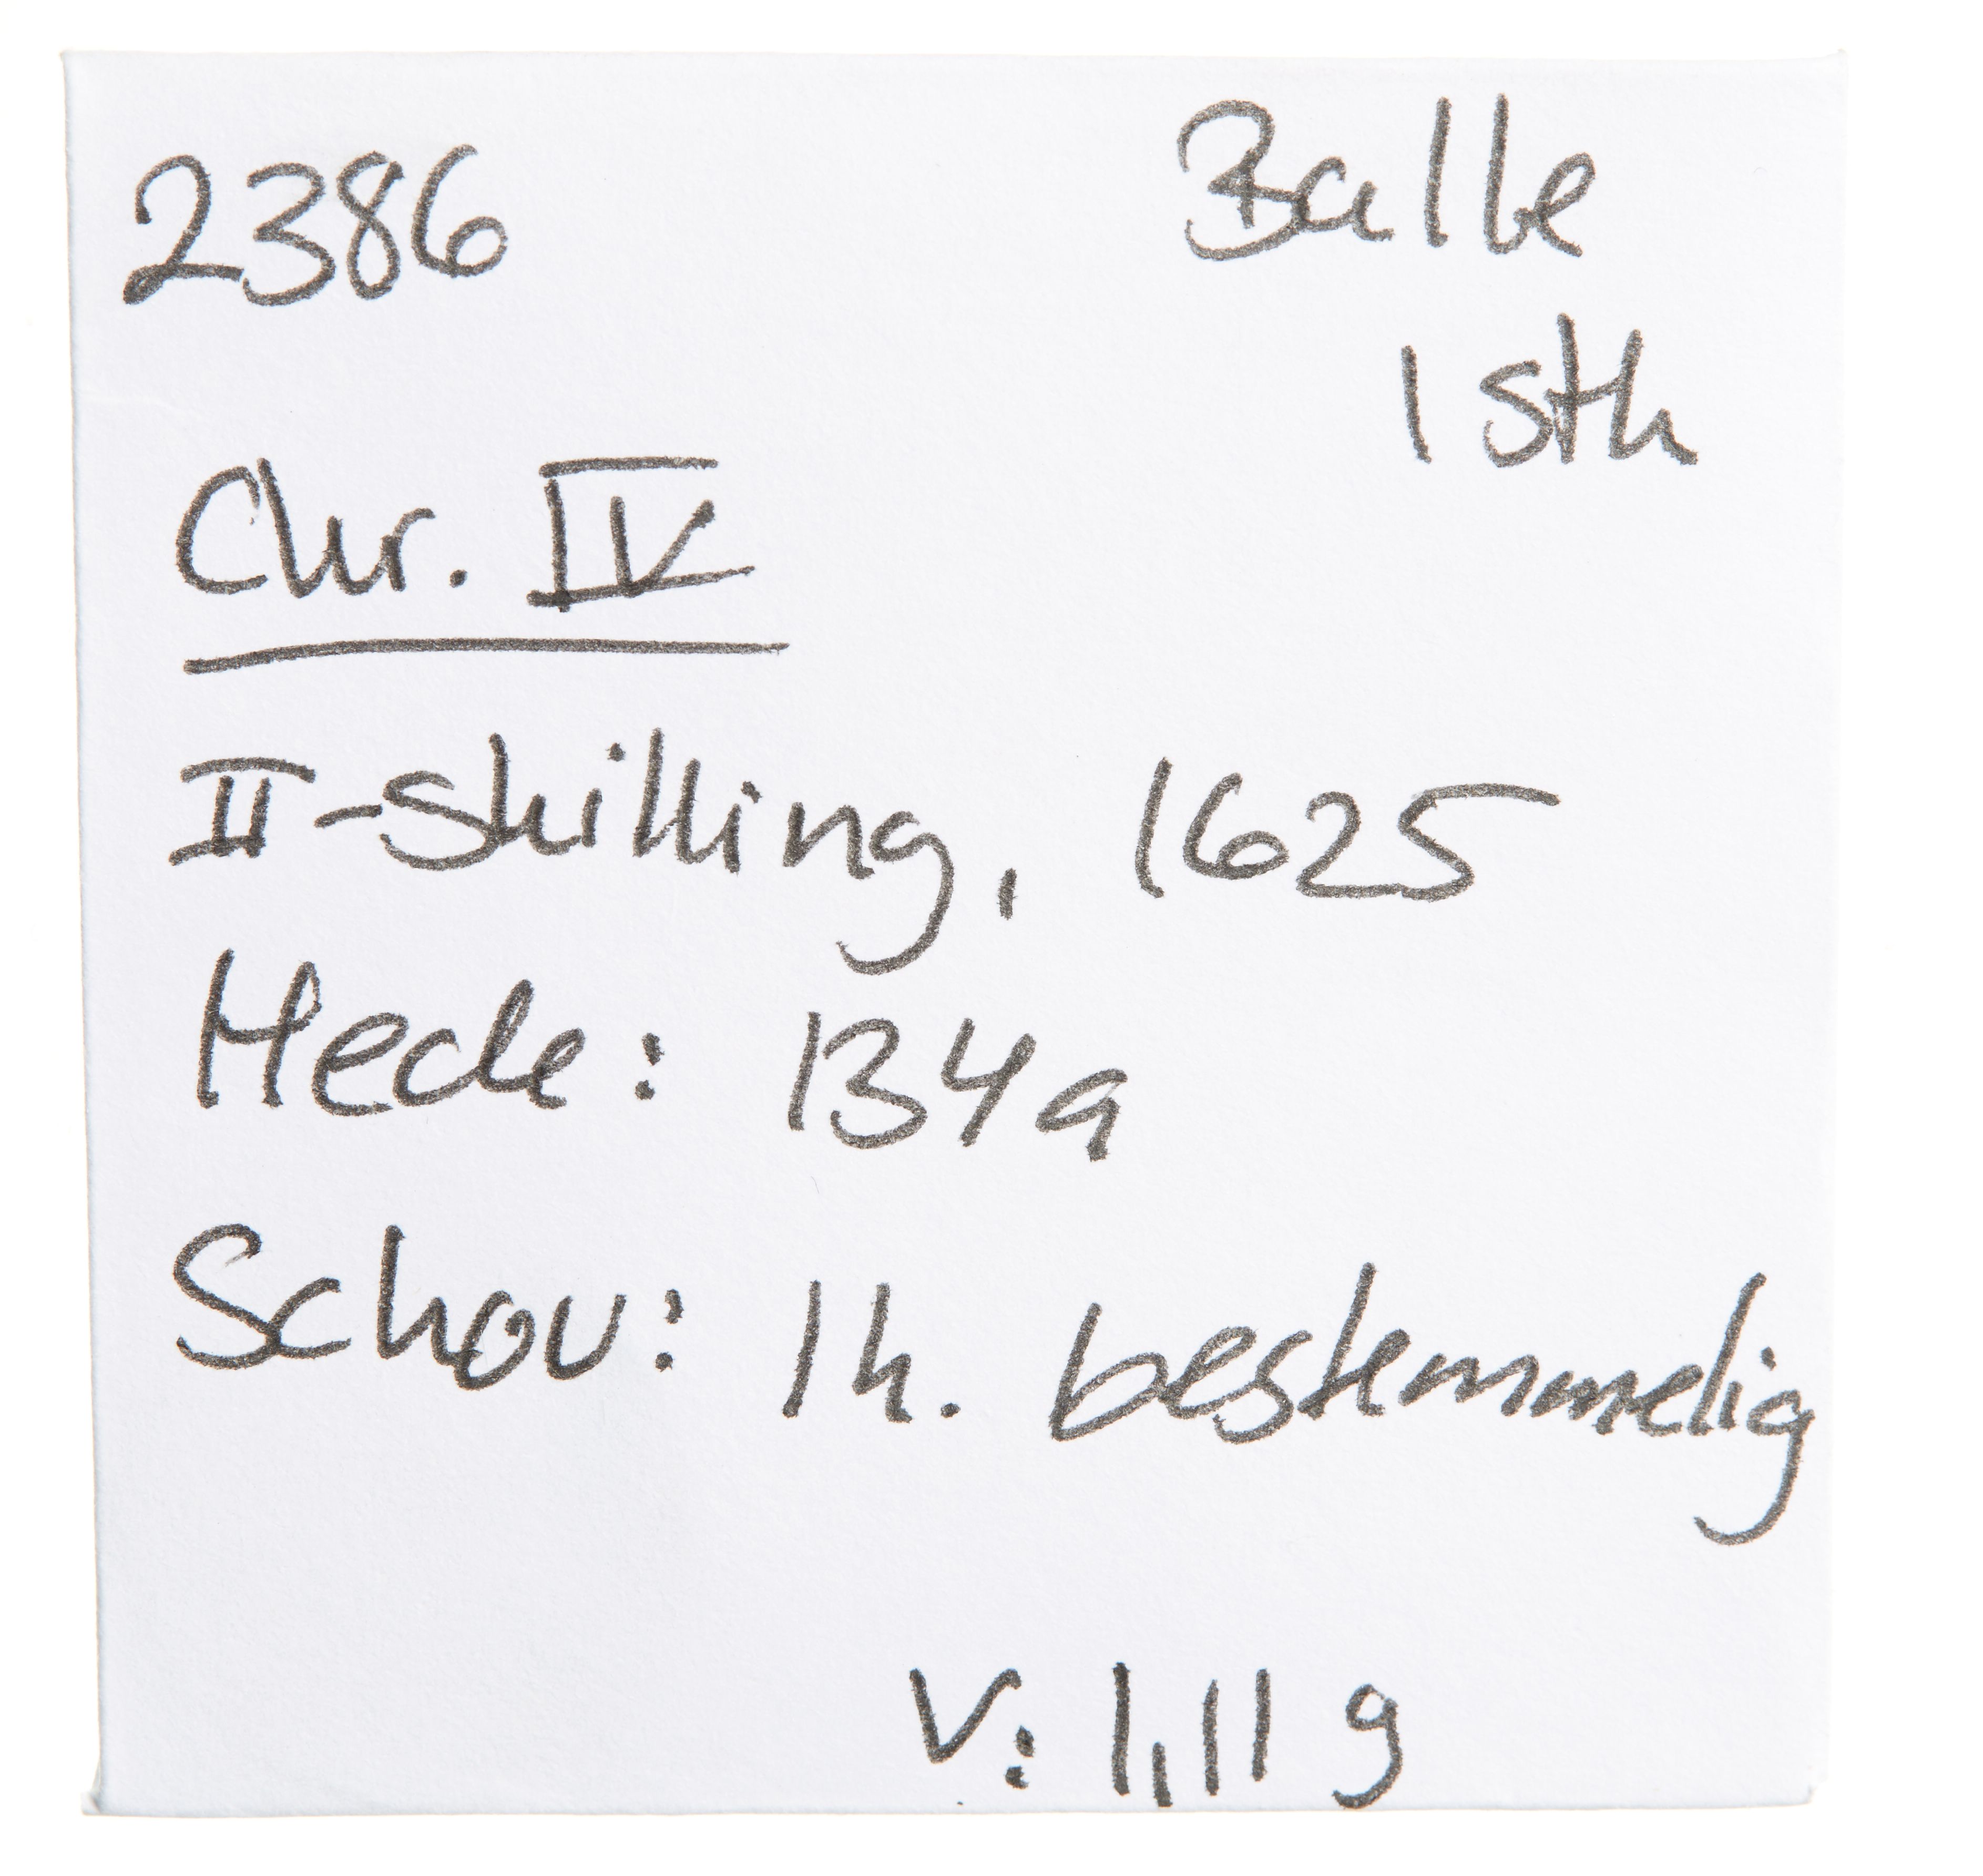 2386
Balle
1 stk
Chr. IV
II-skilling, 1625
Hede: 134a
Schou: Ik. bestemmelig
V: 1,11 g